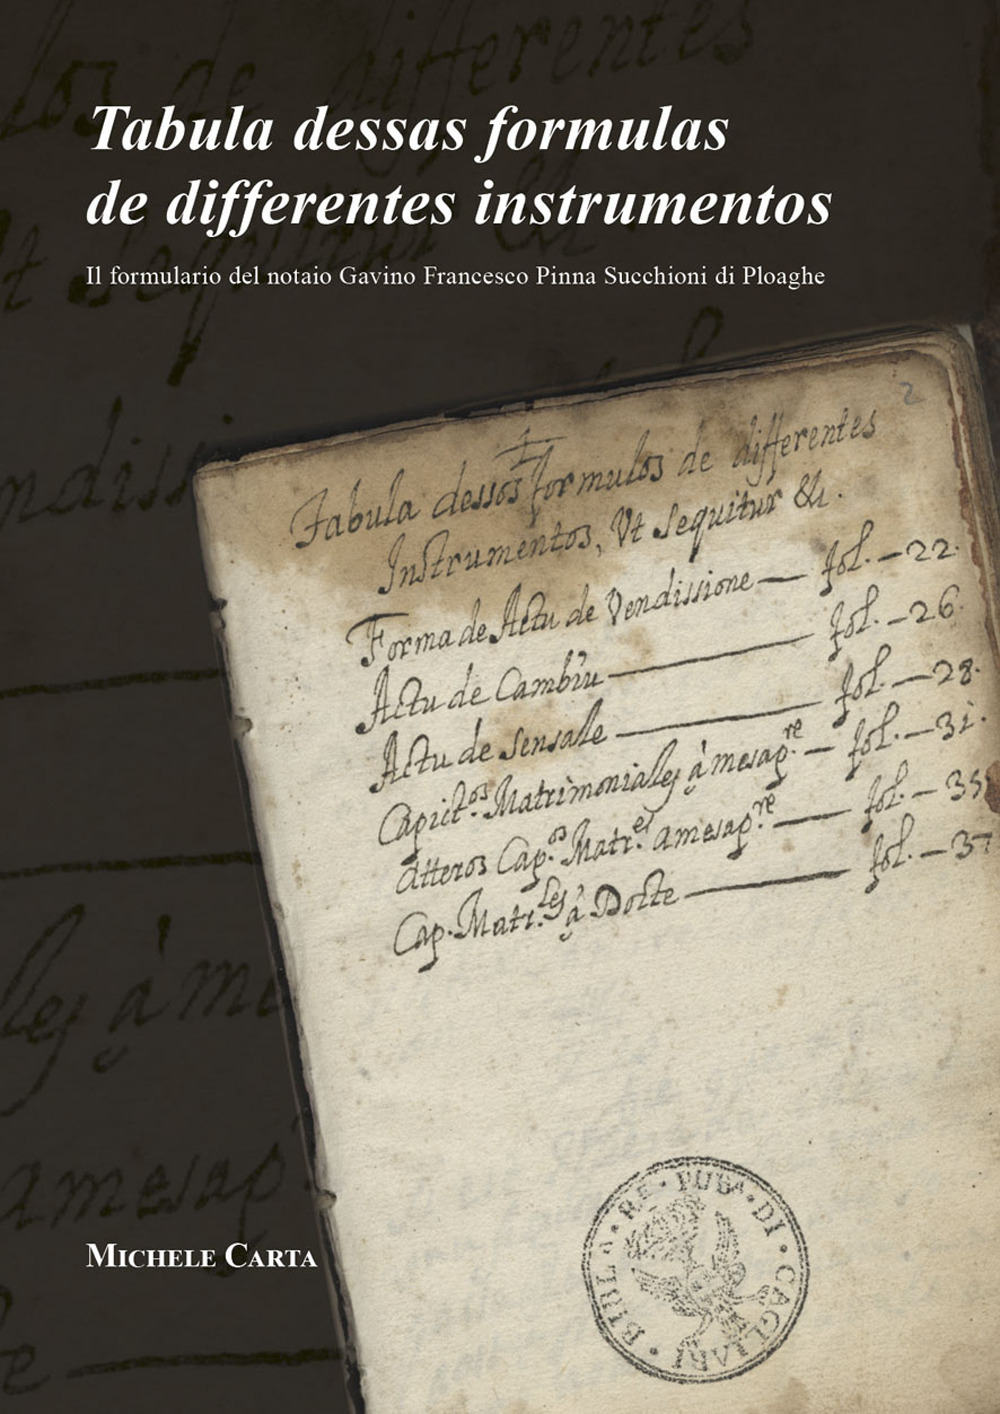 Tabula dessas formulas
de differentes instrumentos
Il formulario del notaio Gavino Francesco Pinna Succhioni di Ploaghe
2
Tabula dessos formulos de differentes
Instrumentos, Ut sequitur &.
Forma de Actu de Vendissione — fol. — 22.
Actu de Cambiu — fol. — 26.
Actu de sensale — fol. — 28.
Capict.os Matrimoniales à mesap.re — fol. — 31.
atteros Cap.os Matr.es amesap.re — fol. — 35
Cap. Matr.les à Docte — fol. — 37
MICHELE CARTA
BIBL.A RE. PUB. DI CAGLIARI